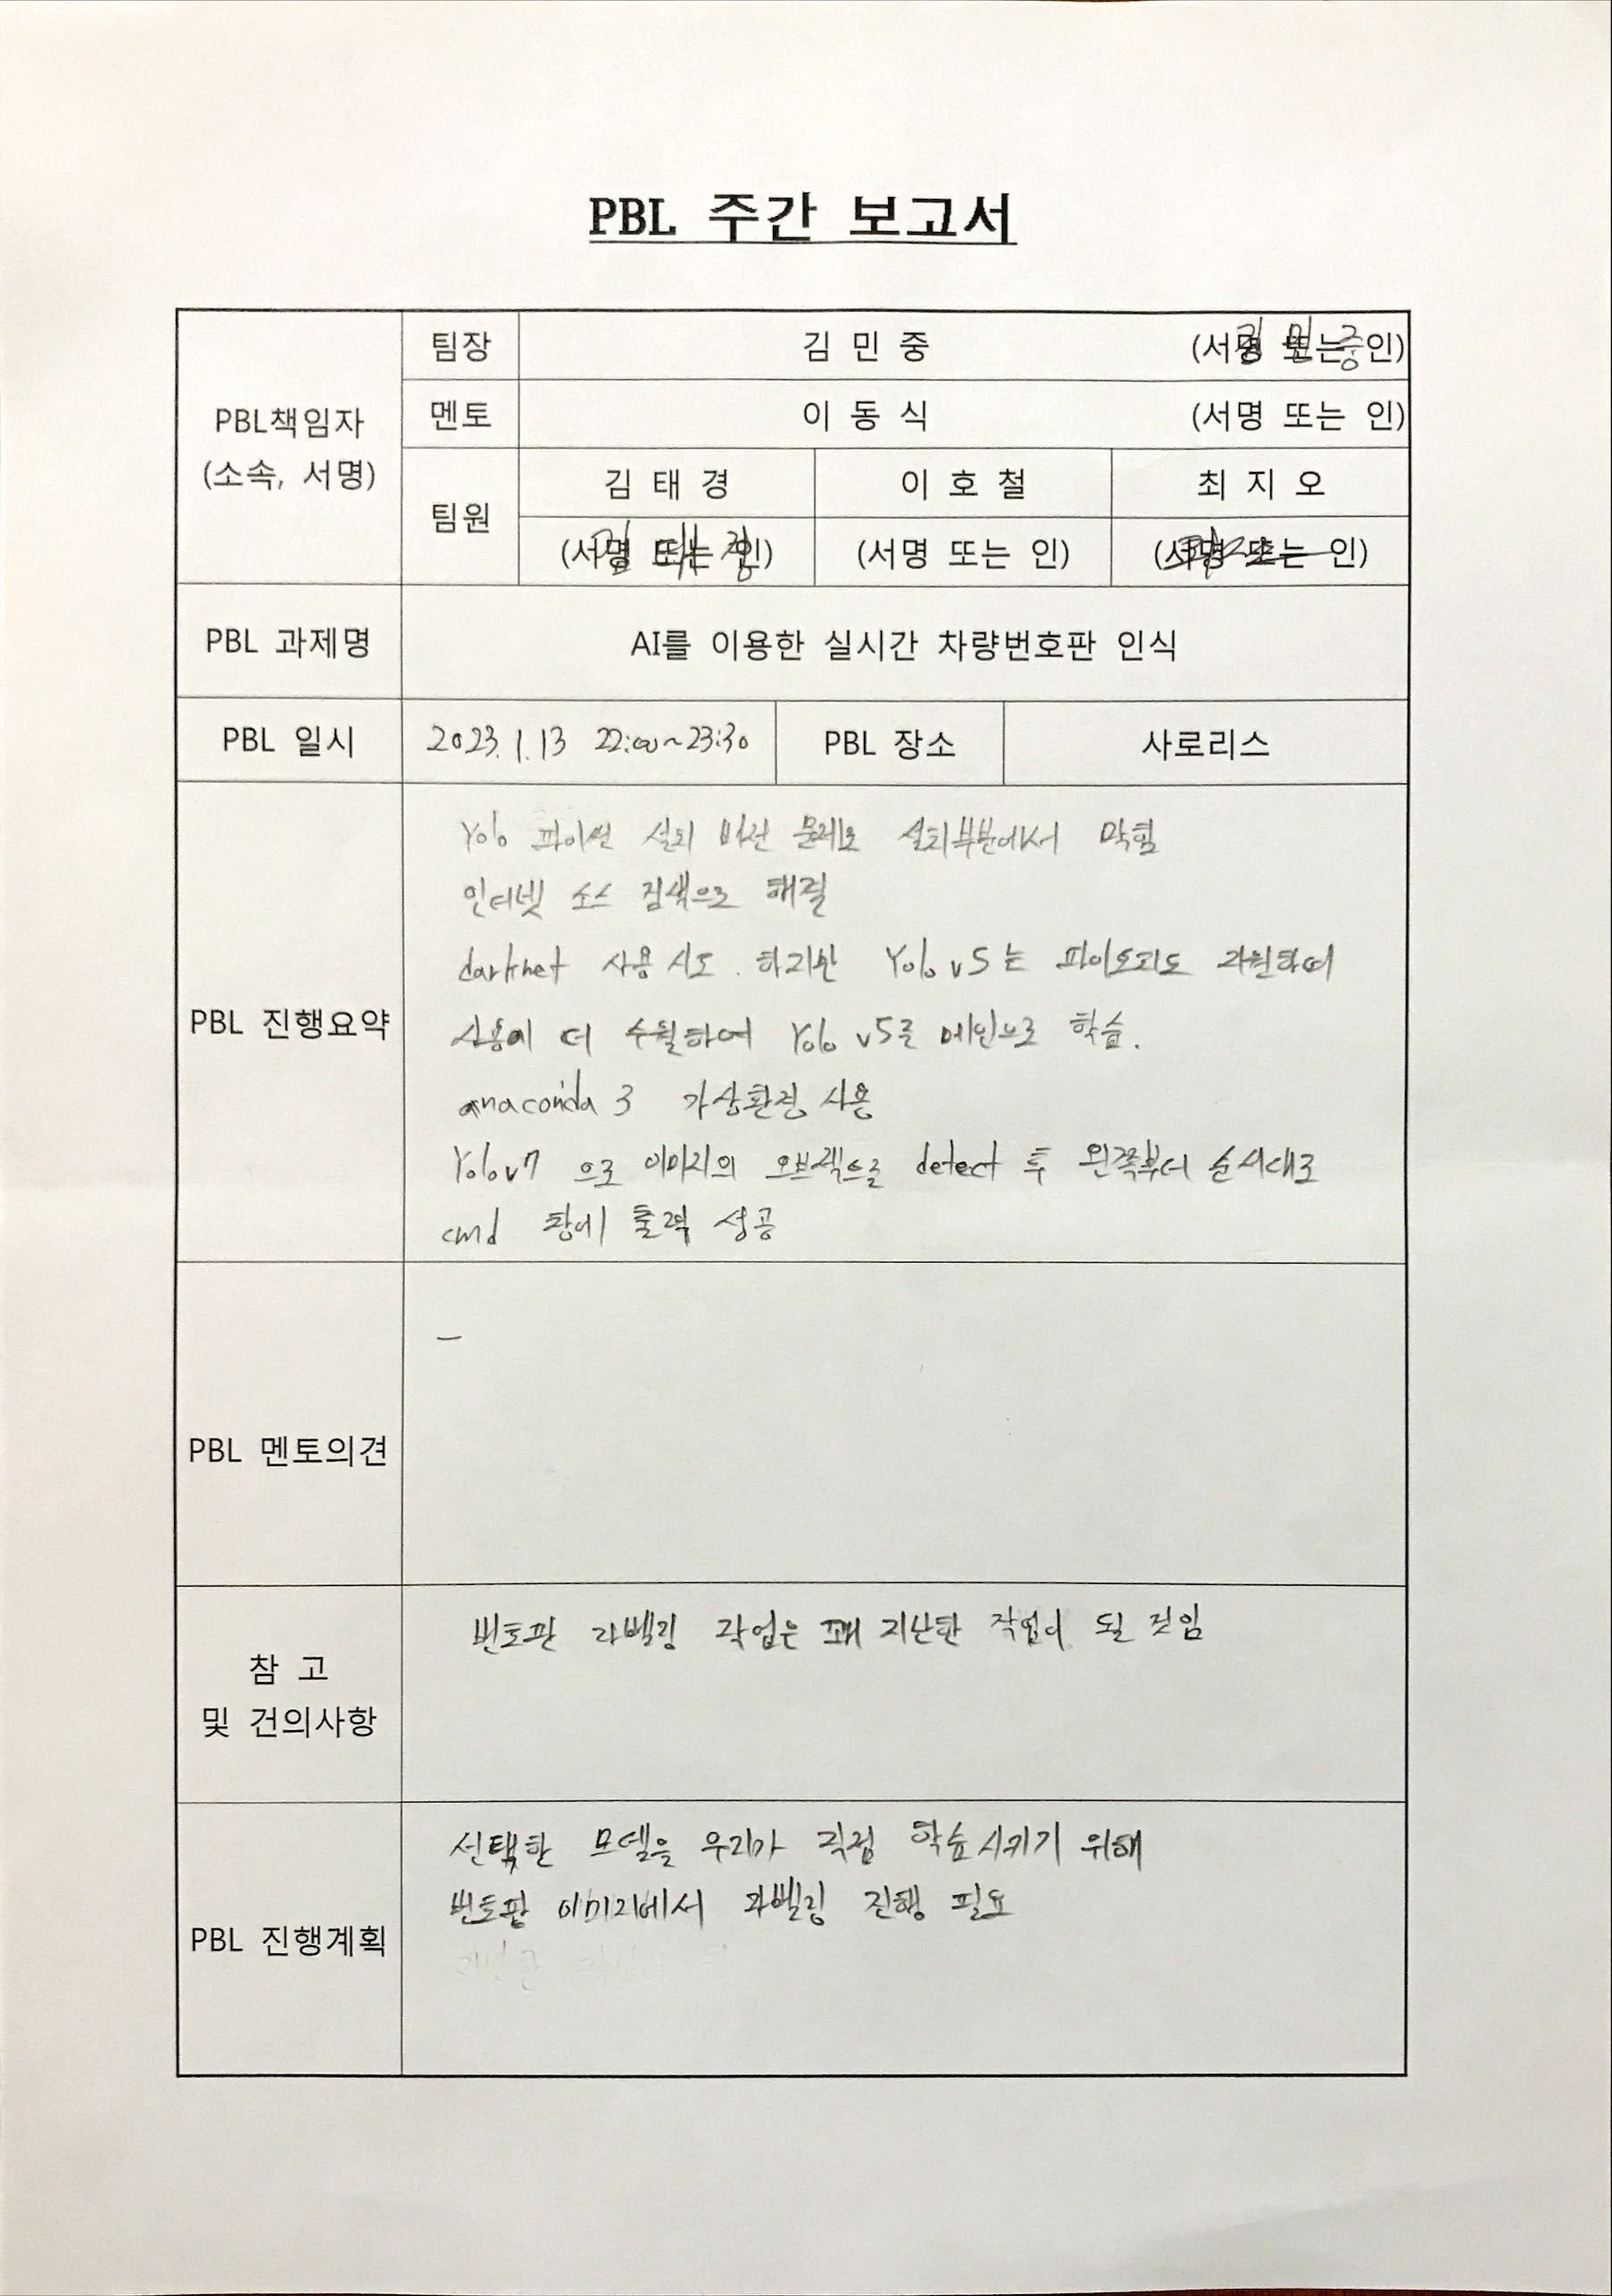 PBL 주간 보고서
PBL책임자
(소속, 서명)
팀장
김 민 중
(서명 또는 인)
김민중
멘토
이 동 식
(서명 또는 인)
팀원
김 태 경
이 호 철
최 지 오
(서명 또는 인)
김태경
(서명 또는 인)
(서명 또는 인)
PBL 과제명
AI를 이용한 실시간 차량번호판 인식
PBL 일시
2023.1.13 22:00~23:30
PBL 장소
사로리스
PBL 진행요약
Yolo 파이썬 설치 버전 문제로 설치부분에서 막힘
인터넷 소스 검색으로 해결
darknet 사용 시도. 하지만 Yolo v5는 파이토치도 지원하며
사용이 더 수월하여 Yolo v5를 메인으로 학습.
anaconda 3 가상환경 사용
Yolov7 으로 이미지의 오브젝으를 detect 후 왼쪽부터 순서대로
cmd 창에 출력 성공
PBL 멘토의견
-
참 고
및 건의사항
번호판 라벨링 작업은 꽤 지난한 작업이 될 것임
PBL 진행계획
선택한 모델을 우리가 직접 학습시키기 위해
번호판 이미지에서 라벨링 진행 필요